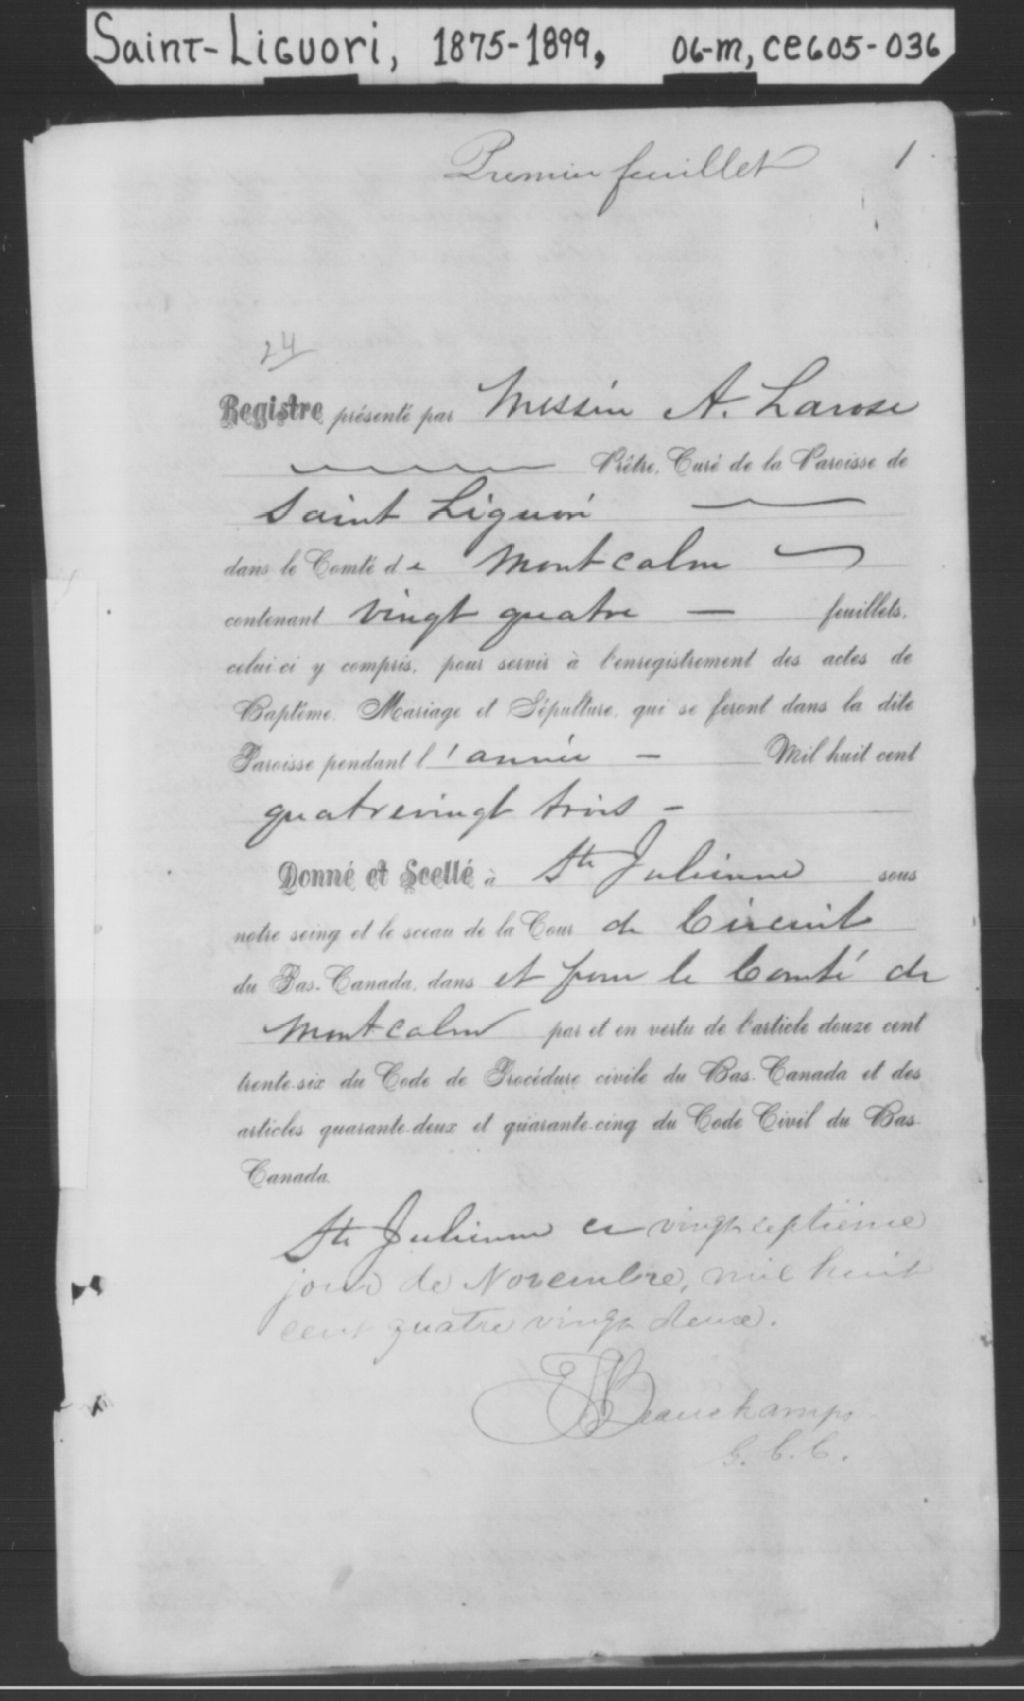 Saint-Liguori, 1875-1899, 06-M, CE605-036
Premier feuillet 1
24
Registre présenté par Messire A. Larose
Prêtre, Curé de la Paroisse de
Saint Liguori
dans le Comté de Montcalm
contenant vingt quatre — feuillets,
celui-ci y compris, pour servir à l'enregistrement des actes de
Baptême, Mariage et Sépulture, qui se feront dans la dite
Paroisse pendant l'année — Mil huit cent
quatrevingt trois —
Donné et Scellé à Ste Julienne sous
notre seing et le sceau de la Cour de Circuit
du Bas-Canada, dans et pour le Comté de
Montcalm par et en vertu de l'article douze cent
trente-six du Code de Procédure civile du Bas-Canada et des
articles quarante-deux et quarante-cinq du Code Civil du Bas-
Canada.
Ste Julienne ce vingt septième
jour de Novembre, mil huit
cent quatre vingt deux.
Beauchamp
G. C. C.